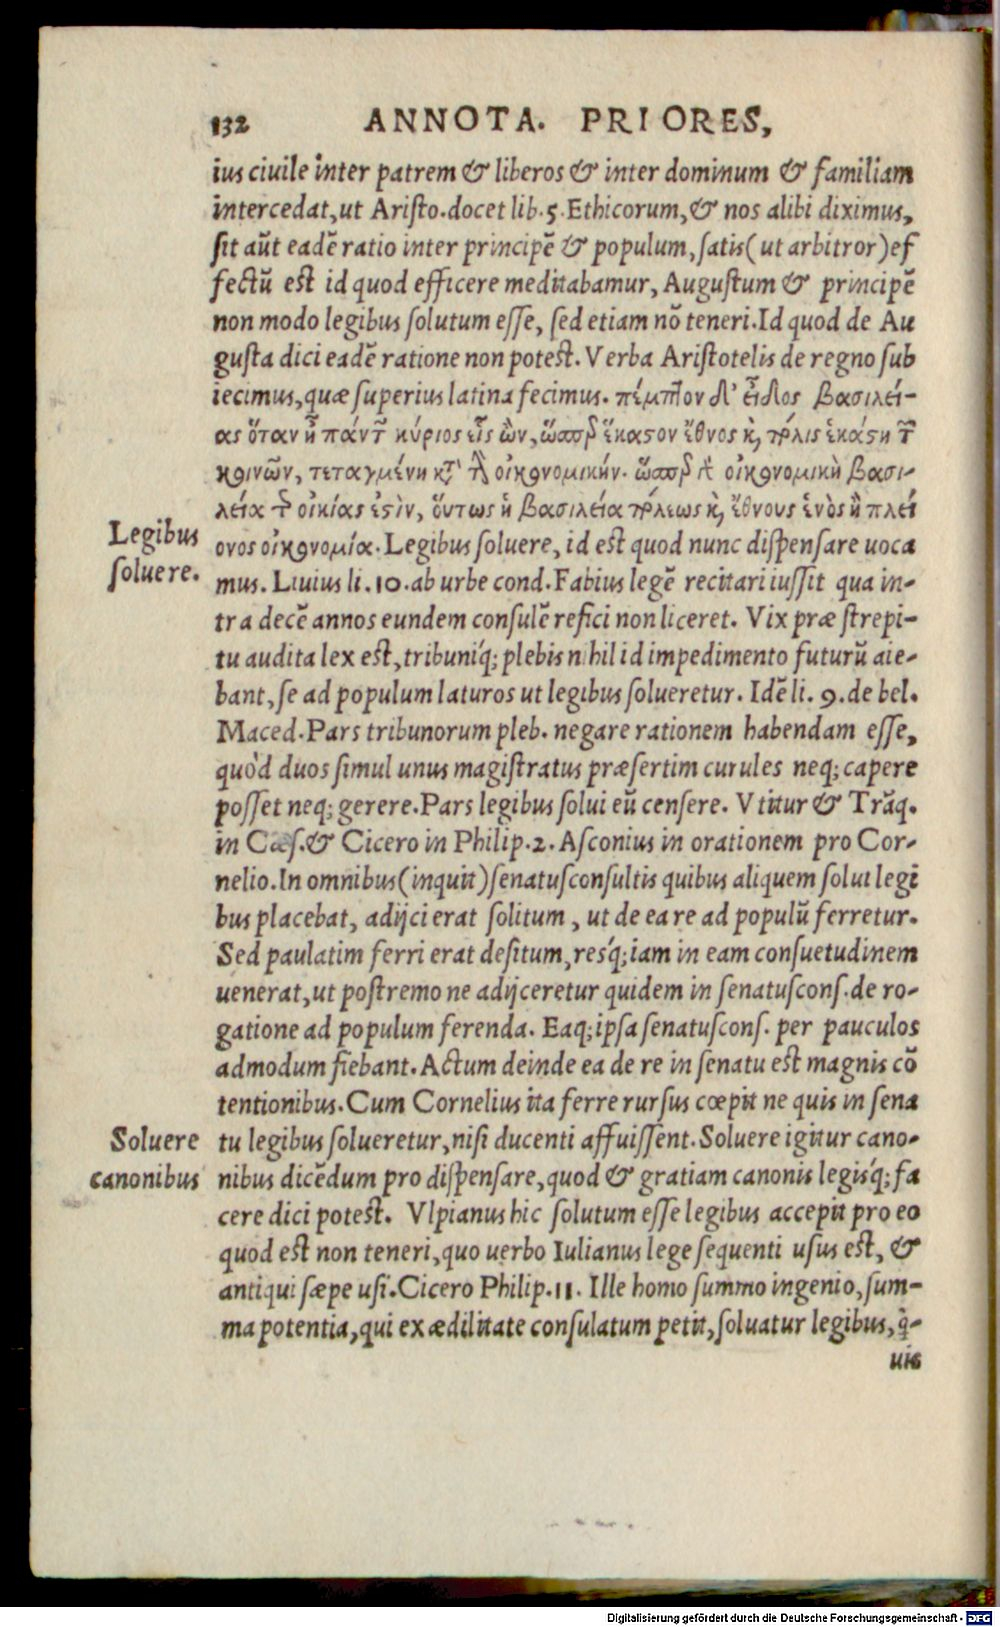 132 ANNOTA. PRIORES,
ius ciuile inter patrem & liberos & inter dominum & familiam
intercedat, ut Aristo. docet lib. 5. Ethicorum, & nos alibi diximus,
sit aūt eadē ratio inter principē & populum, satis (ut arbitror) ef
fectū est id quod efficere meditabamur, Augustum & principē
non modo legibus solutum esse, sed etiam nō teneri. Id quod de Au
gusta dici eadē ratione non potest. Verba Aristotelis de regno sub
iecimus, quæ superius latina fecimus. πέμπτον δ' εἶδος βασιλεί-
ας ὅταν ᾖ πάντων κύριος εἷς ὢν, ὥσπερ ἕκαστον ἔθνος κὶ πόλις ἑκάστη τῶν
κοινῶν, τεταγμένη κατὰ τὴν οἰκονομικήν. ὥσπερ γὰρ οἰκονομικὴ βασι-
λεία τὶς οἰκίας ἐστὶν, ὅυτως ἡ βασιλεία πόλεως κὶ ἔθνους ἑνὸς ἢ πλεί
Legibus
soluere.
ονος οἰκονομία. Legibus soluere, id est quod nunc dispensare uoca
mus. Liuius li. 10. ab urbe cond. Fabius legē recitari iussit qua in-
tra decē annos eundem consulē refici non liceret. Vix præ strepi-
tu audita lex est, tribuniq́; plebis nihil id impedimento futurū aie-
bant, se ad populum laturos ut legibus solueretur. Idē li. 9. de bel.
Maced. Pars tribunorum pleb. negare rationem habendam esse,
quòd duos simul unus magistratus præsertim curules neq; capere
posset neq; gerere. Pars legibus solui eū censere. Vtitur & Trāq.
in Cæs. & Cicero in Philip. 2. Asconius in orationem pro Cor-
nelio. In omnibus (inquit) senatusconsultis quibus aliquem solui legi
bus placebat, adijci erat solitum, ut de ea re ad populū ferretur.
Sed paulatim ferri erat desitum, resq́; iam in eam consuetudinem
uenerat, ut postremo ne adijceretur quidem in senatuscons. de ro-
gatione ad populum ferenda. Eaq; ipsa senatuscons. per pauculos
admodum fiebant. Actum deinde ea de re in senatu est magnis cō
tentionibus. Cum Cornelius ita ferre rursus cœpit ne quis in sena
Soluere
canonibus
tu legibus solueretur, nisi ducenti affuissent. Soluere igitur cano-
nibus dicēdum pro dispensare, quod & gratiam canonis legisq́; fa
cere dici potest. Vlpianus hic solutum esse legibus accepit pro eo
quod est non teneri, quo uerbo Iulianus lege sequenti usus est, &
antiqui sæpe usi. Cicero Philip. 11. Ille homo summo ingenio, sum-
ma potentia, qui ex ædilitate consulatum petit, soluatur legibus, q̃-
uis
Digitalisierung gefördert durch die Deutsche Forschungsgemeinschaft - DFG